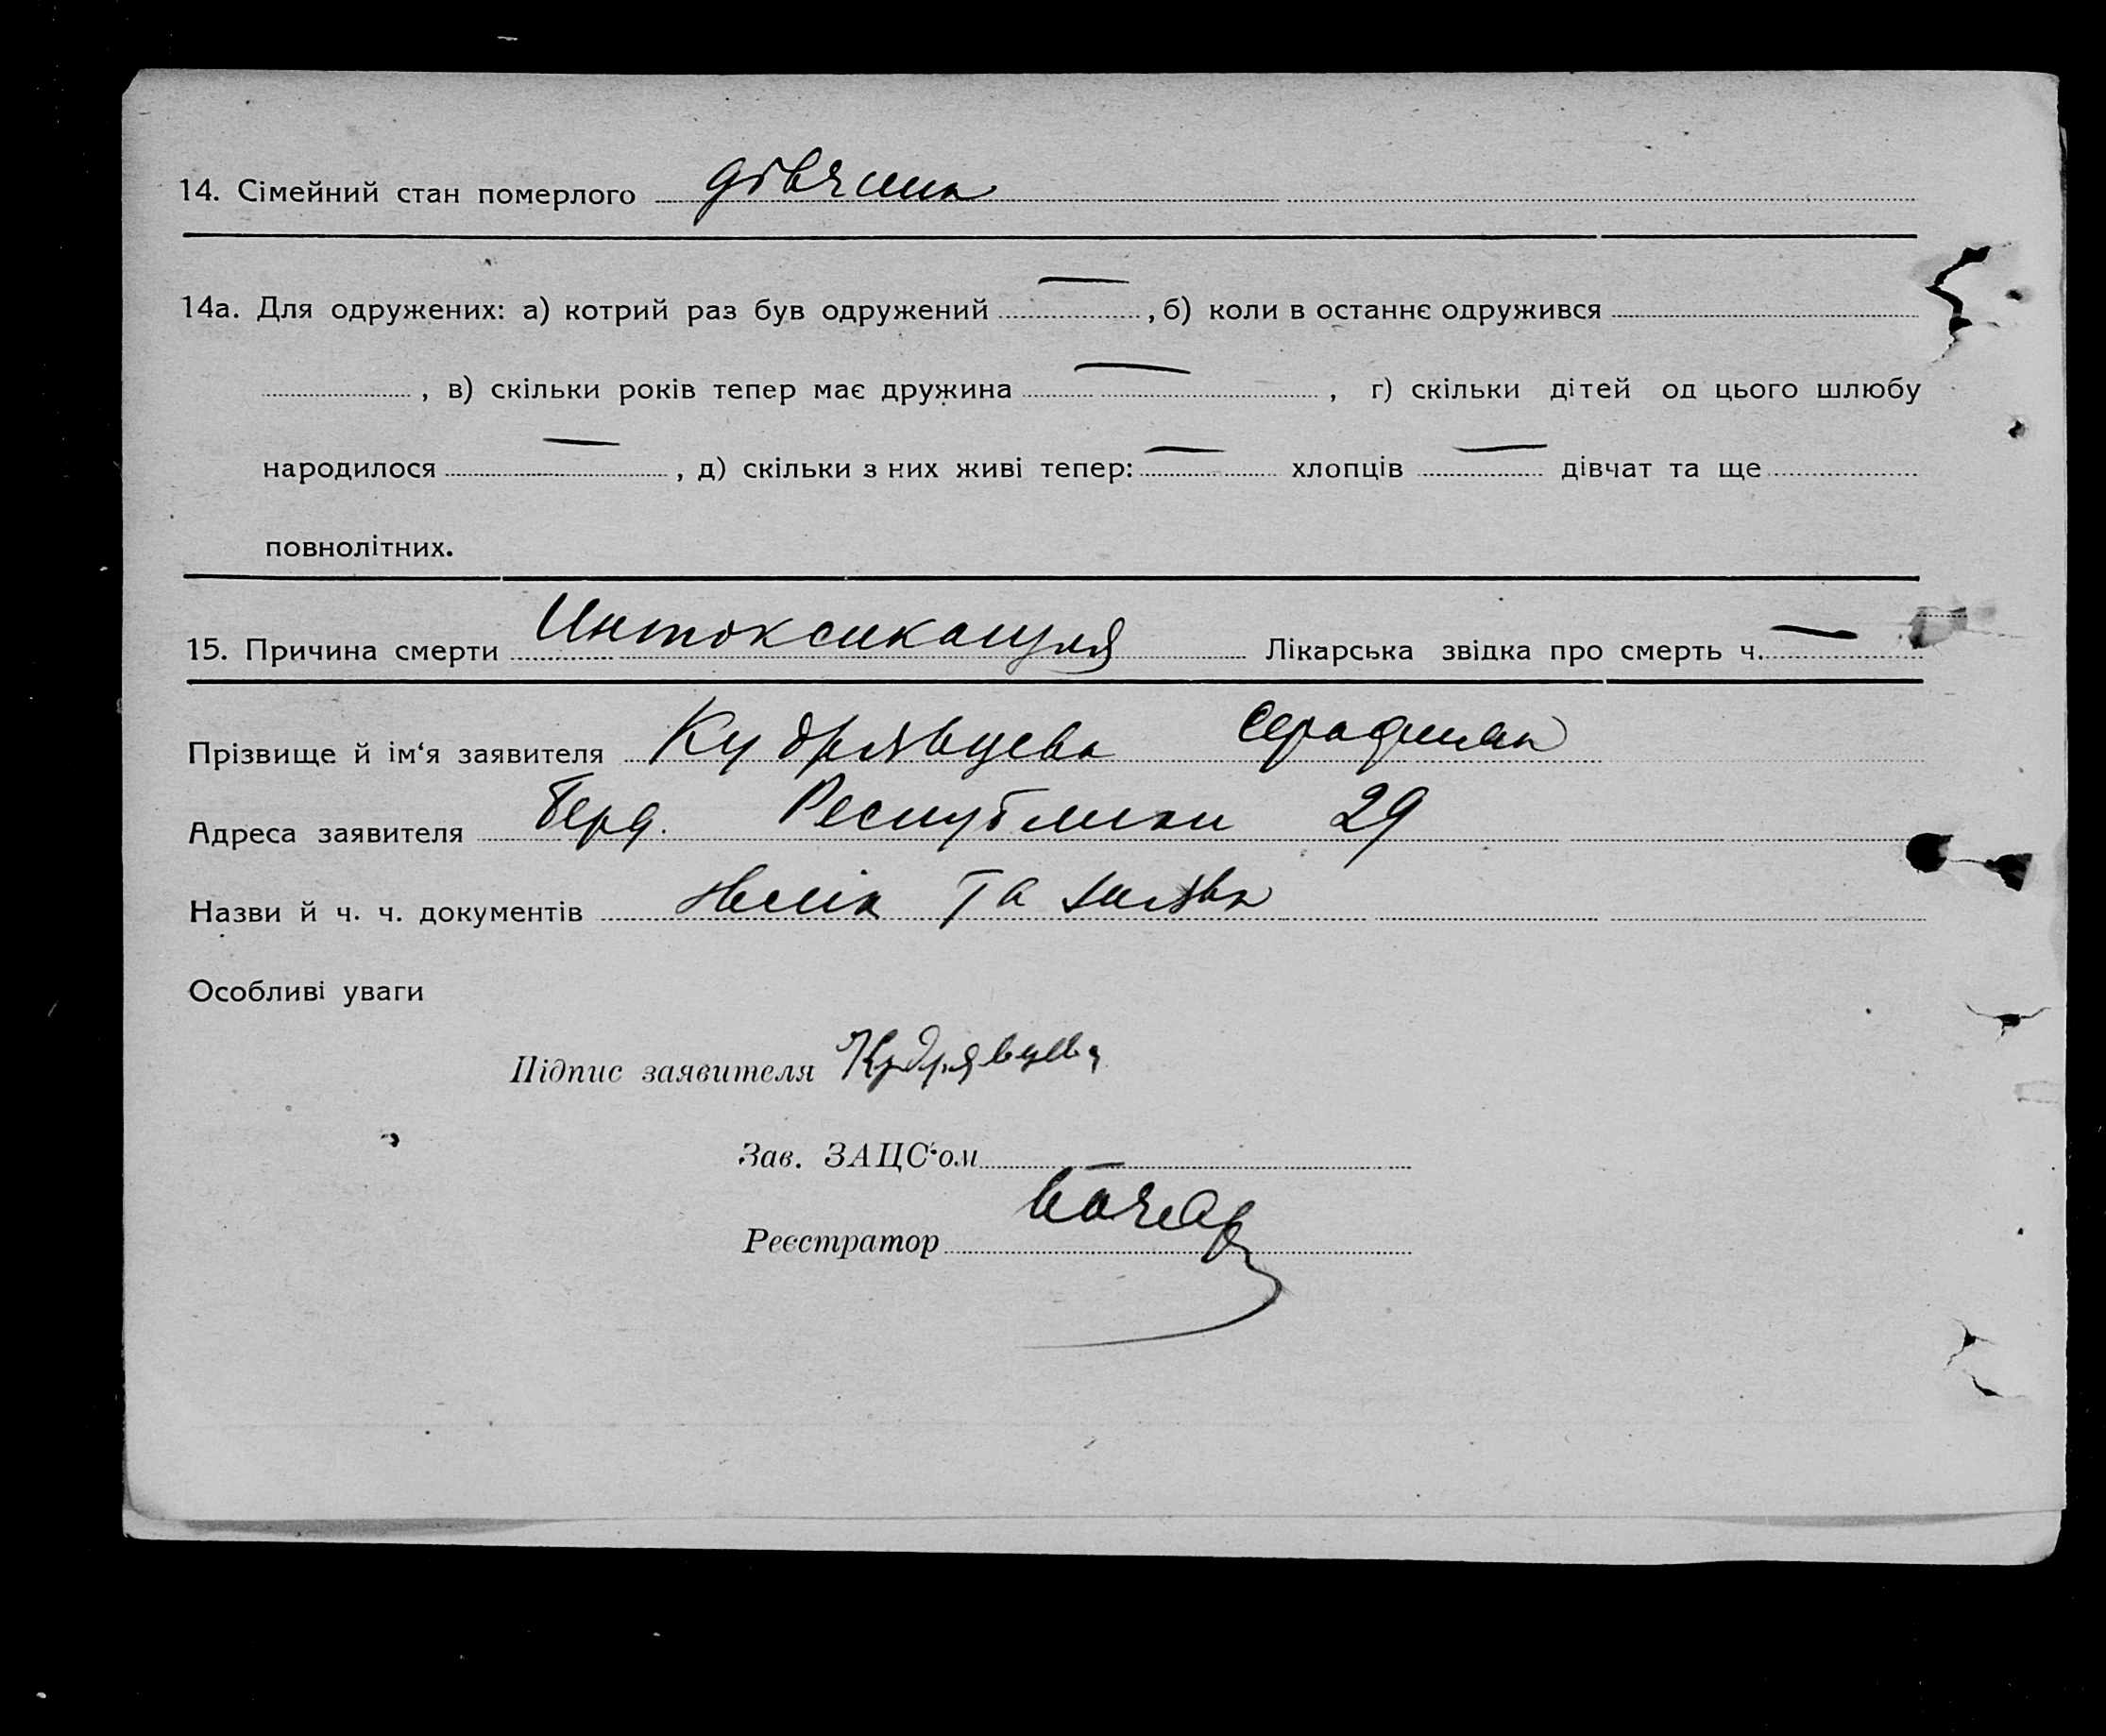 14. Сімейний стан померлого дівчина
14а. Для одружених: а) котрий раз був одружений — , б) коли в останнє одружився
, в) скільки років тепер має дружина — , г) скільки дітей од цього шлюбу
народилося — , д) скільки з них живі тепер: — хлопців — дівчат та ще
повнолітних.
15. Причина смерти Интоксикация Лікарська звідка про смерть ч. —
Прізвище й ім‘я заявителя Кудрявцева Серафима
Адреса заявителя Берд. Республики 29
Назви й ч. ч. документів та заява
Особливі уваги
Підпис заявителя Кудрявцева
Зав. ЗАЦС‘ом —
Реєстратор